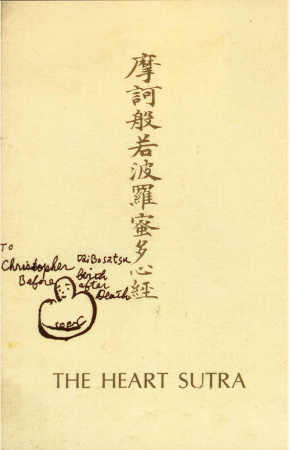 摩訶般若波羅蜜多心經
TO
Christopher
Before
DaiBosatsu
birth
after
Death
THE HEART SUTRA